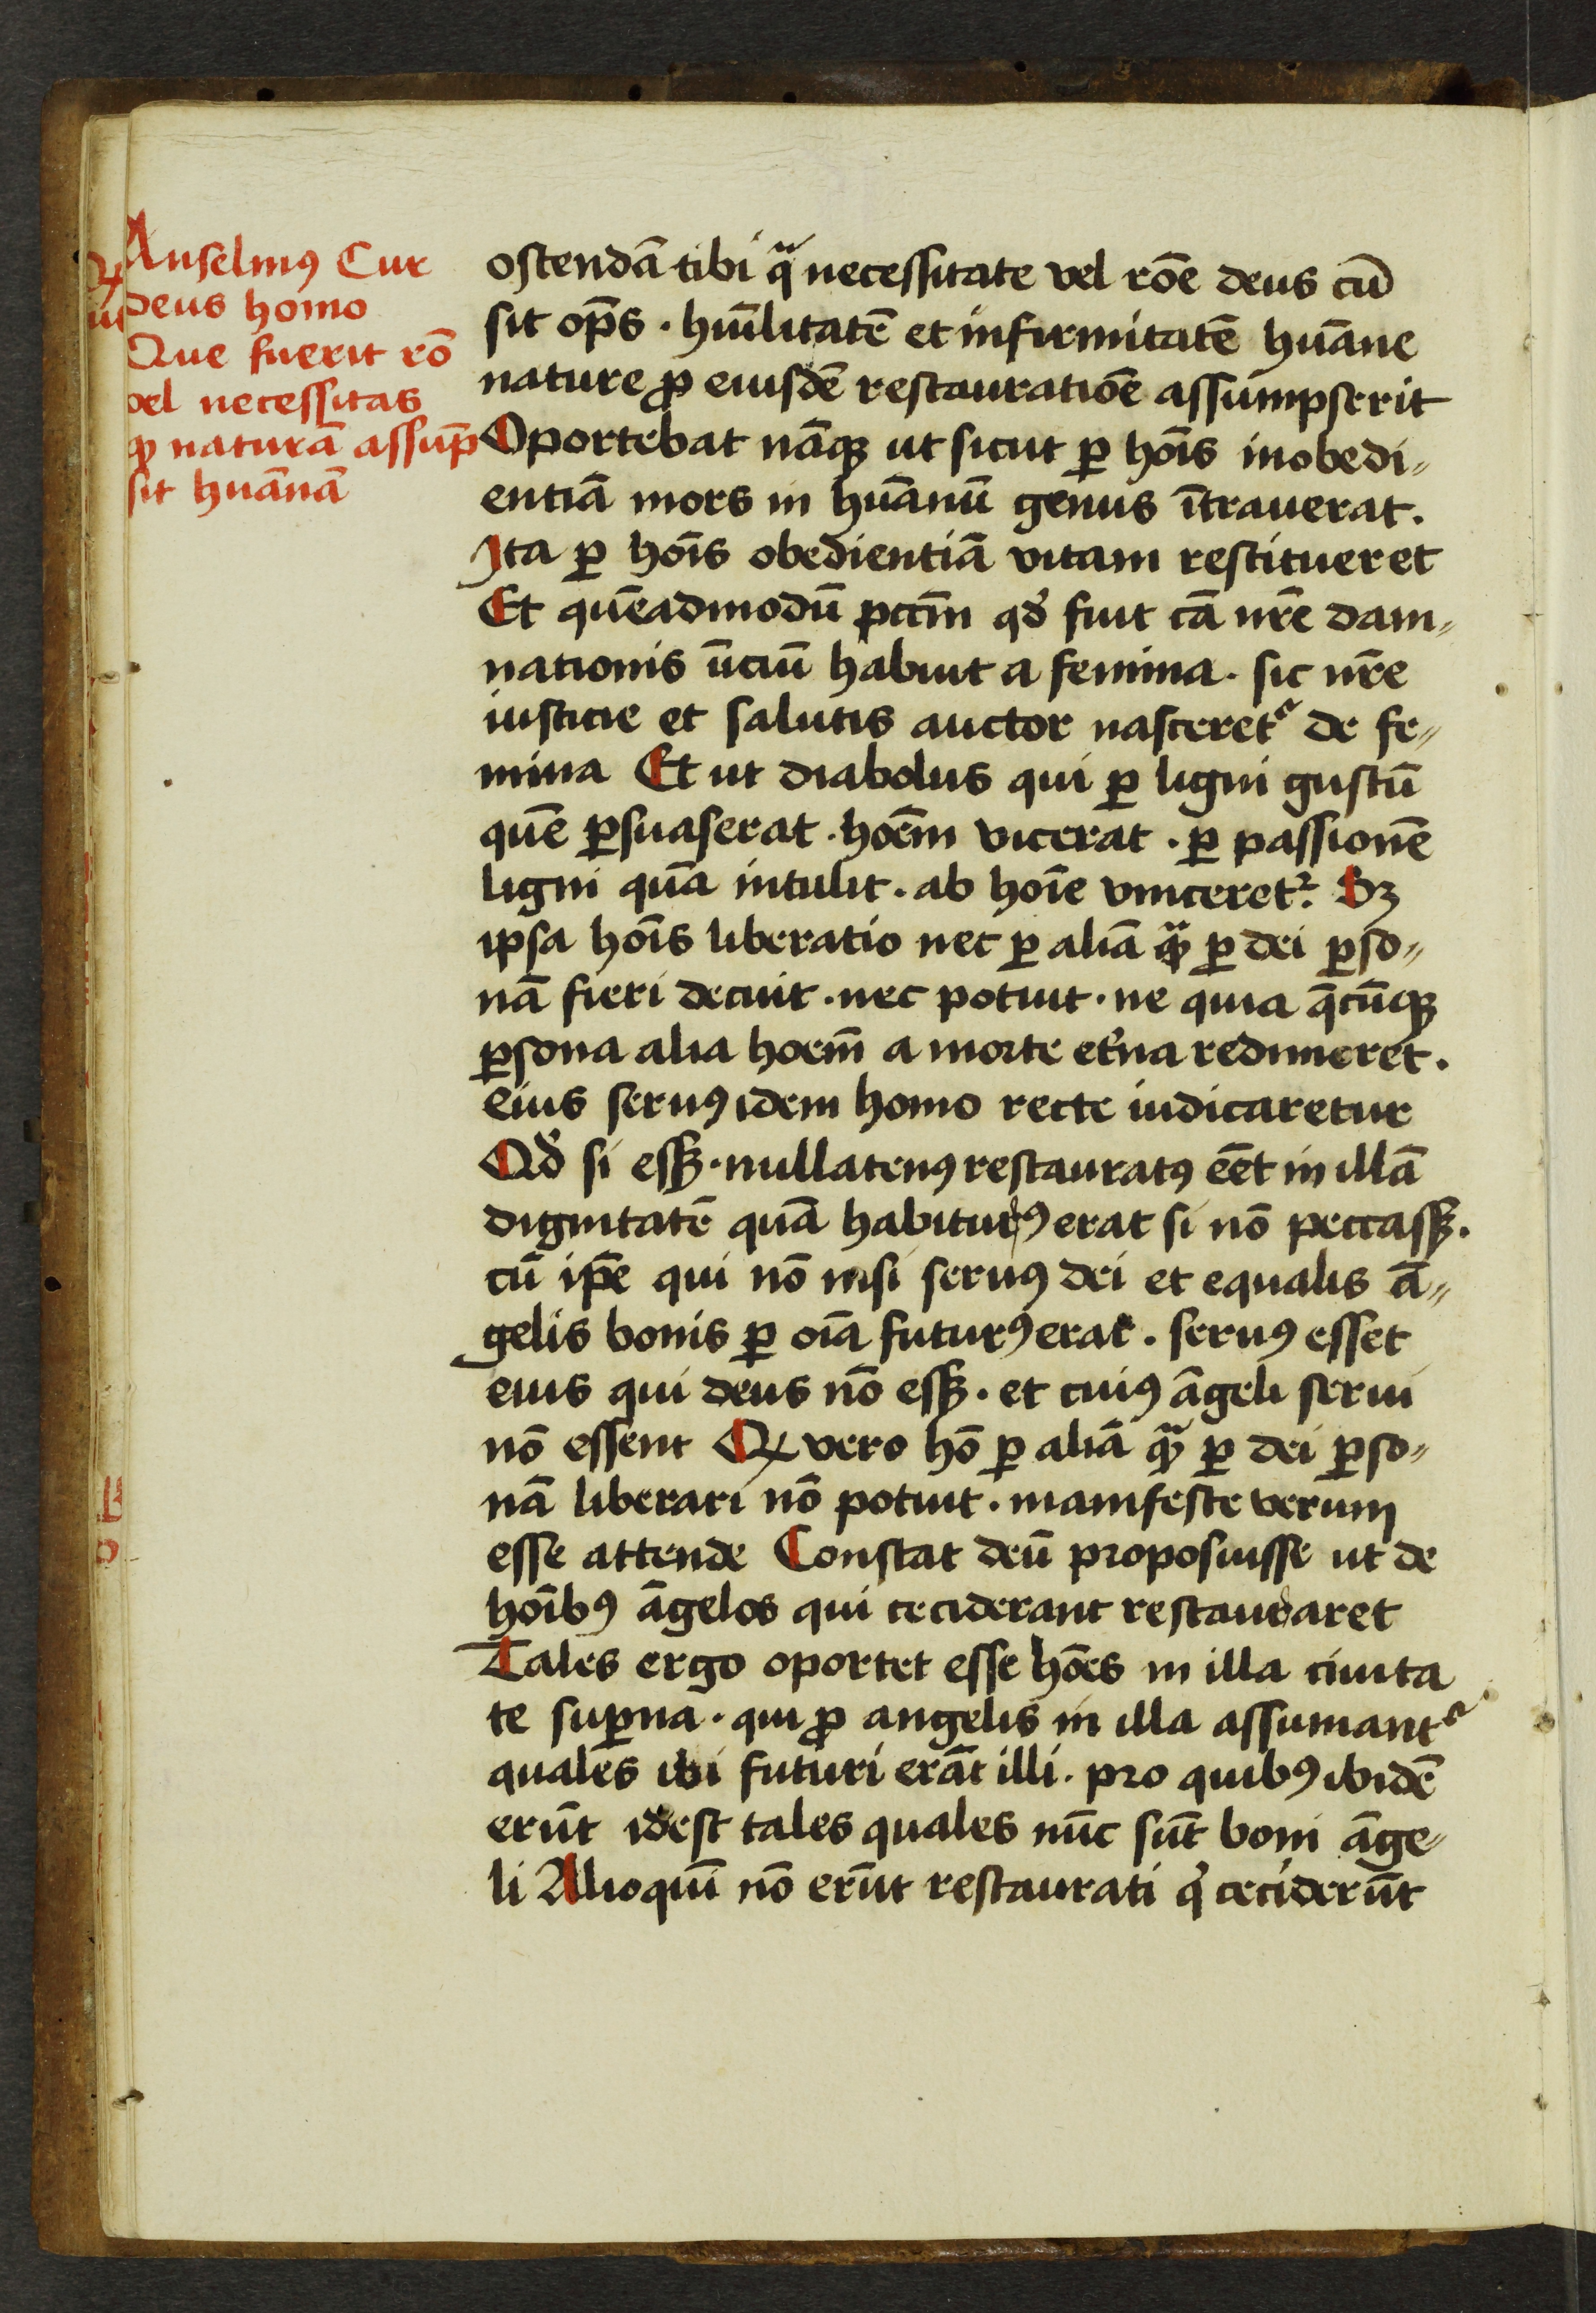 Anselmꝰ Cur
deus homo
Que fuerit rō
vel necessitas
ꝙ naturā assūp
sit huānā
ostendā tibi qᷓ necessitate vel rōe deus cū
sit op̄s · huīlitatē et infirmitatē huāne
nature ꝓ eiusdē restauratiōe assumpserit
Oportebat nāqꝫ ut sicut ꝑ hoīs inobedi⸗
entiā mors in huānū genus ītrauerat.
Ita ꝑ hoīs obedientiā vitam restitueret
Et quēadmodū pctm̄ qd̛ fuit cā nr̄e dam⸗
nationis īitiū habuit a femina · sic nr̄e
iusticie et salutis auctor nasceretᷣ de fe⸗
mina Et ut diabolus qui ꝑ ligni gustū
quē ꝑsuaserat · hoēm vicerat · ꝑ passionē
ligni quā intulit · ab hoīe vinceretᷣ. Sꝫ
ipsa hoīs liberatio nec ꝑ aliā qᷓꝫ ꝑ dei ꝑso⸗
nā fieri decuit · nec potuit · ne quia q̄cūqꝫ
ꝑsona alia hoem̄ a morte et̛na redimeret.
eius seruꝰ idem homo recte iudicaretur
Qd̛ si essꝫ · nullatenꝰ restauratꝰ eēt in illā
dignitatē quā habiturꝰ erat si nō peccassꝫ.
cū ip̄e qui nō nisi seruꝰ dei et equalis ā⸗
gelis bonis ꝑ oīa futurꝰ erat · seruꝰ esset
eius qui deus nō essꝫ · et cuiꝰ āgeli serui
nō essent Qꝫ vero hō ꝑ aliā qᷓꝫ ꝑ dei ꝑso⸗
nā liberari nō potuit · manifeste verum
esse attende Constat deū proposuisse ut de
hoībꝰ āgelos qui ceciderant restauraret
Tales ergo oportet esse hoēs in illa ciuita
te suꝑna · qui ꝓ angelis in illa assumantᷣ
quales ibi futuri erāt illi · pro quibꝰ ibidē
erūt idest tales quales nūc sūt boni āge⸗
li Alioquī nō erūt restaurati q̇ ceciderūt